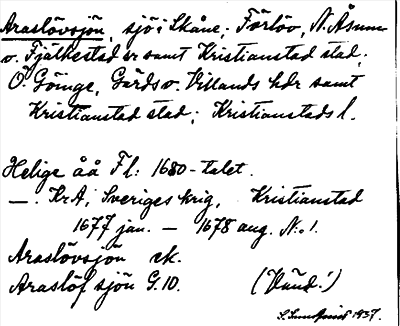 Araslövsjön, sjö i Skåne; Färlöv, N. Åsum
o. Fjälkestad sr samt Kristianstad stad;
Ö. Göinge, Gärds o. Villands hdr samt
Kristianstad stad; Kristianstads l.
Helige åå Fl: 1680-talet.
—. KrA, Sveriges krig, Kristianstad
1677 jan. — 1678 aug. N:o 1.
Araslövsjön ek.
Araslöf sjön G.10. (Vånd!)
1937.